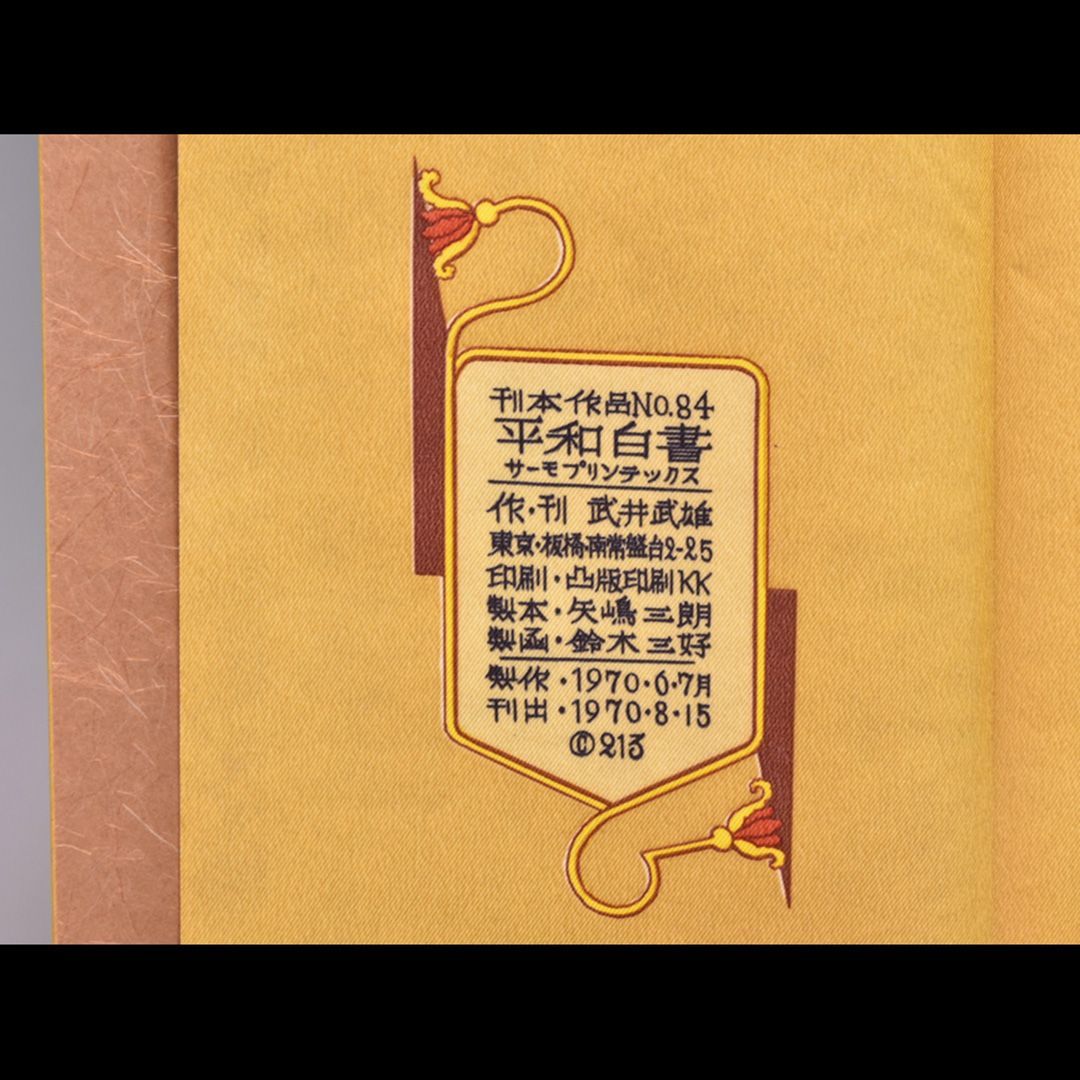 刊本作品No.84
平和白書
サーモプリンテックス
作・刊 武井武雄
東京・板橋・南常盤台2-25
印刷・凸版印刷KK
製本・矢嶋三朗
製函・鈴木三好
製作・1970・6・7月
刊出・1970・8・15
©213